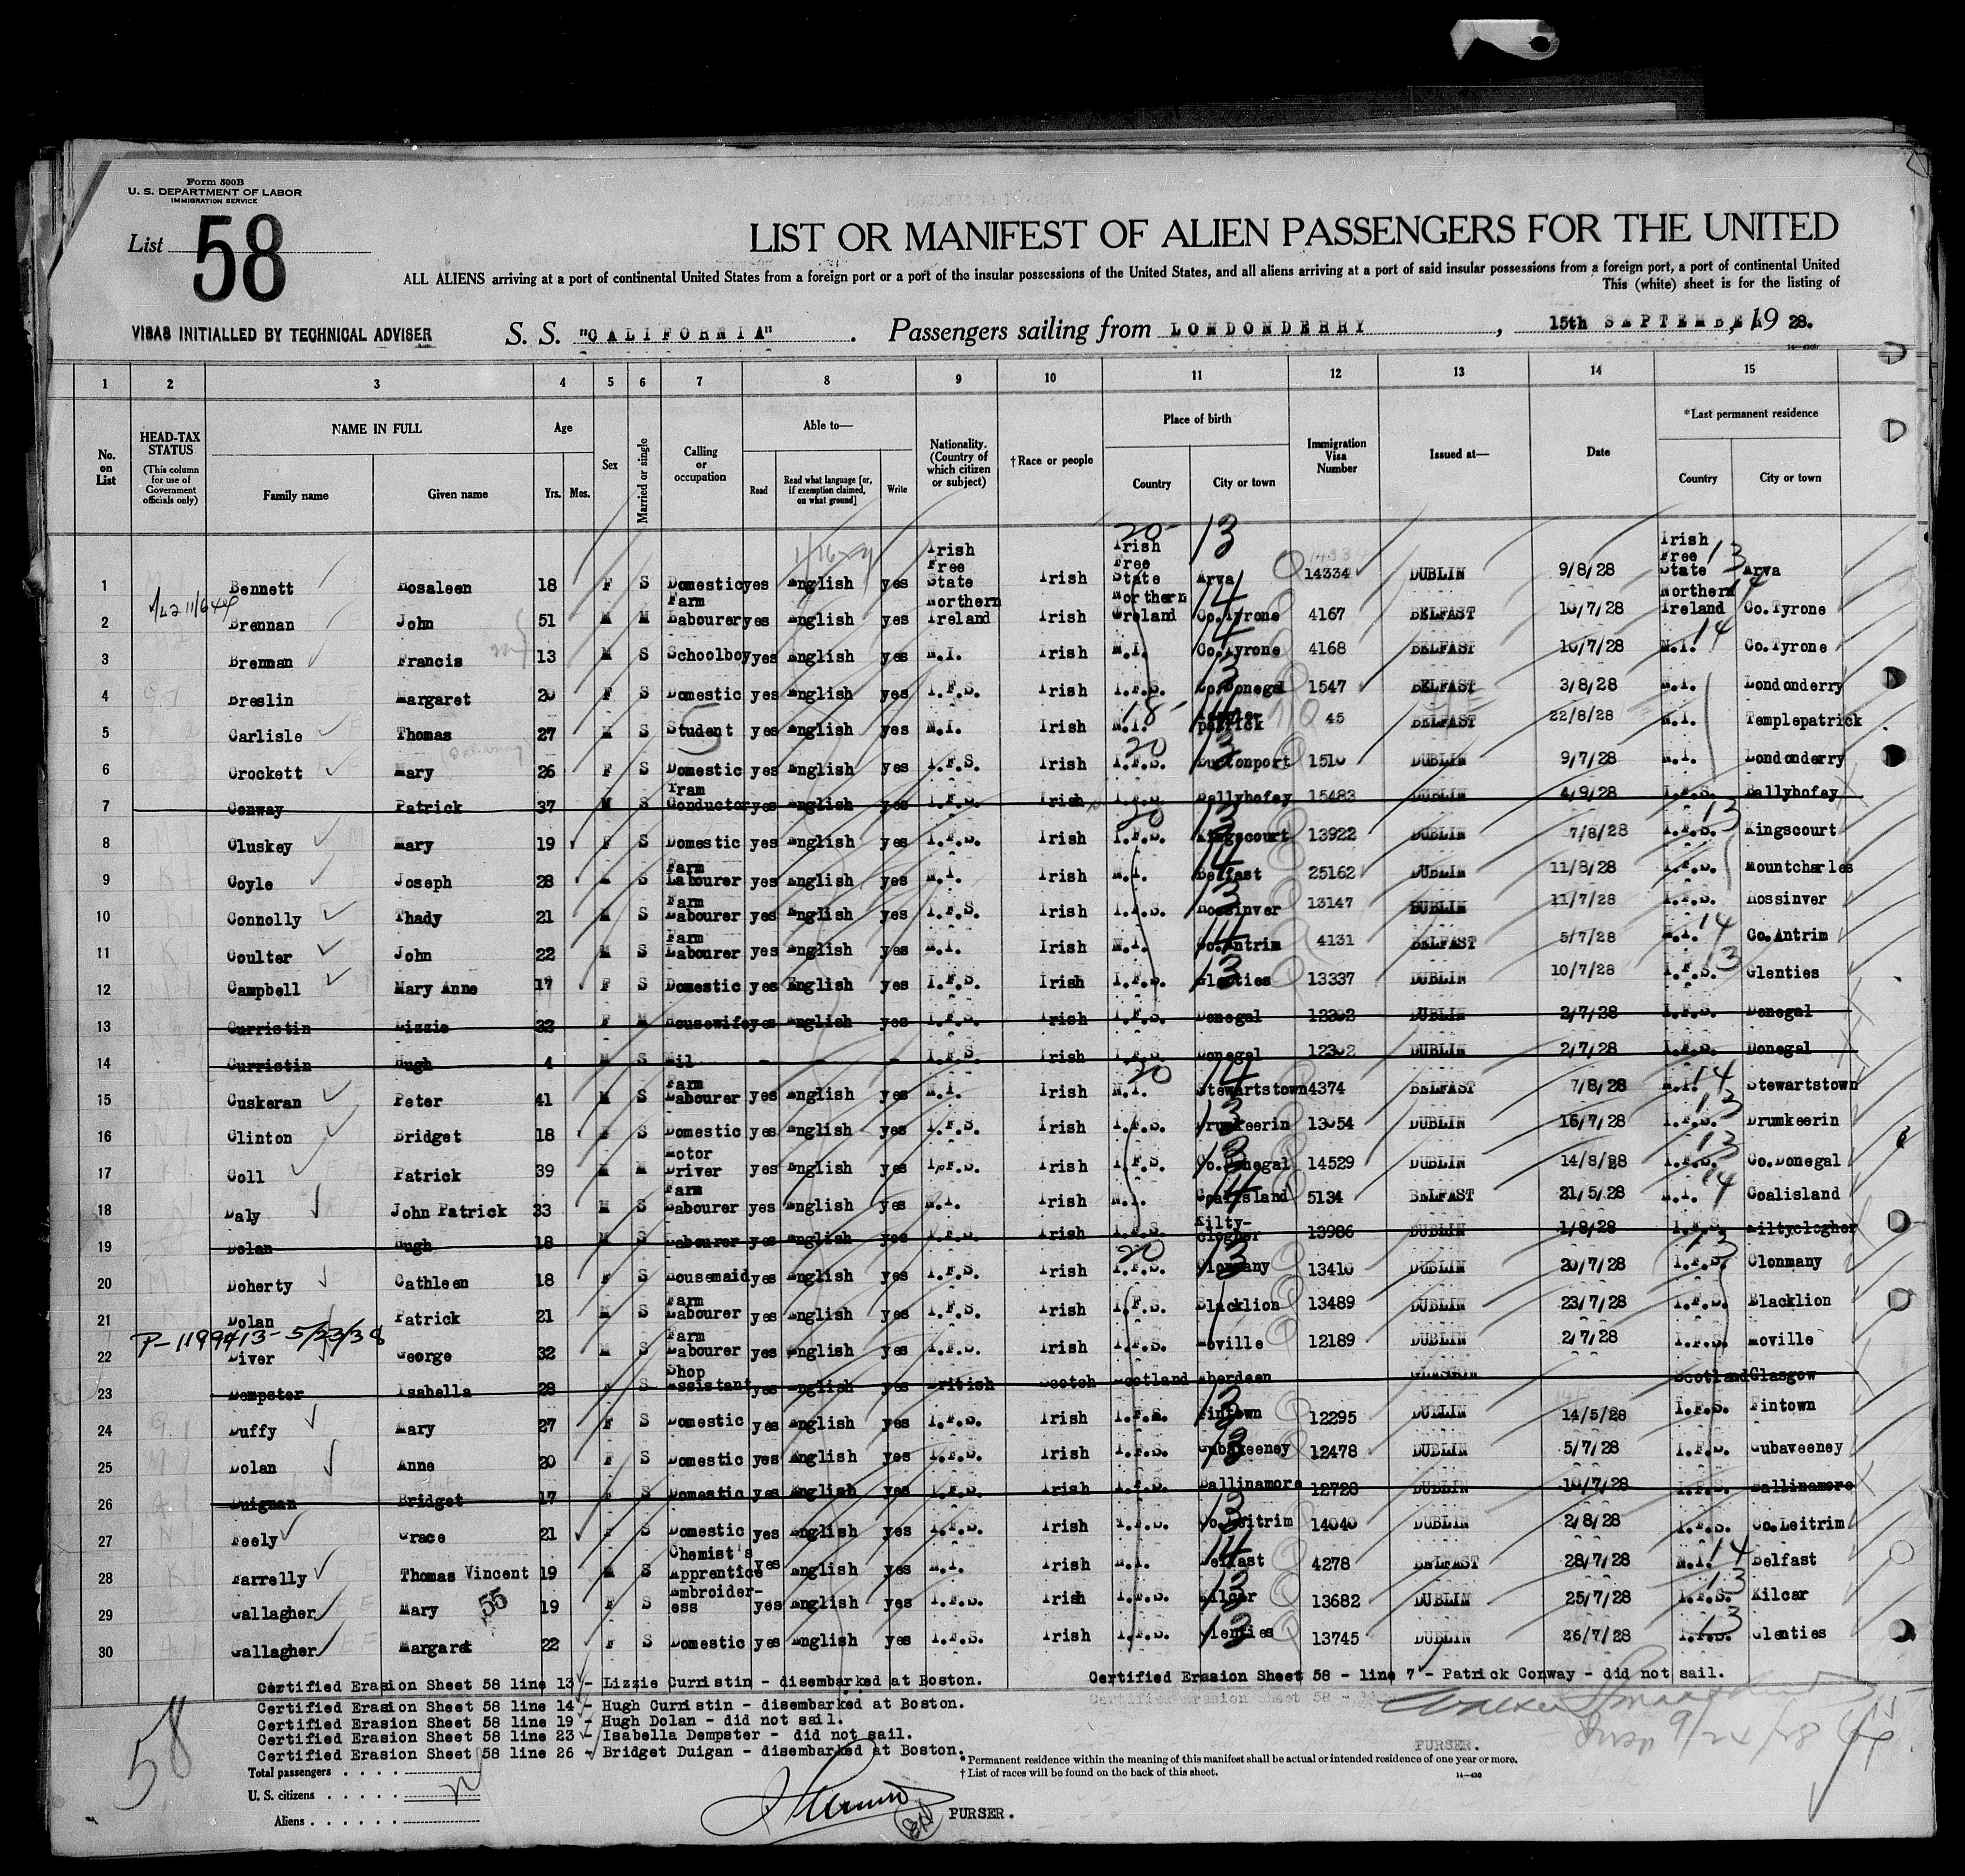 Form 500B
U. S. DEPARTMENT OF LABOR
IMMIGRATION SERVICE
List 58
LIST OR MANIFEST OF ALIEN PASSENGERS FOR THE UNITED
ALL ALIENS arriving at a port of continental United States from a foreign port or a port of the insular possessions of the United States, and all aliens arriving at a port of said insular possessions from a foreign port, a port of continental United
This (white) sheet is for the listing of
VISAS INITIALLED BY TECHNICAL ADVISER
S. S. "CALIFORNIA". Passengers sailing from LONDONDERRY, 15th SEPTEMBER, 19 28.
1 2 3 4 5 6 7 8 9 10 11 12 13 14 15
No. on List
HEAD-TAX STATUS (This column for use of Government officials only)
NAME IN FULL Family name Given name
Age Yrs. Mos.
Sex
Married or single
Calling or occupation
Able to— Read Read what language [or, if exemption claimed, on what ground] Write
Nationality. (Country of which citizen or subject)
†Race or people
Place of birth Country City or town
Immigration Visa Number
Issued at—
Date
*Last permanent residence Country City or town
1 Bennett Rosaleen 18 F S Domestic yes English yes Irish Free State Irish Irish Free State Arva 14334 DUBLIN 9/8/28 Irish Free State Arva
2 Brennan John 51 M M Farm Labourer yes English yes Northern Ireland Irish Northern Ireland Co.Tyrone 4167 BELFAST 10/7/28 Northern Ireland Co.Tyrone
3 Brennan Francis 13 M S Schoolboy yes English yes N.I. Irish N.I. Co.Tyrone 4168 BELFAST 10/7/28 N.I. Co.Tyrone
4 Breslin Margaret 20 F S Domestic yes English yes I.F.S. Irish I.F.S. Co.Donegal 1547 BELFAST 3/8/28 N.I. Londonderry
5 Carlisle Thomas 27 M S Student yes English yes N.I. Irish N.I. patrick 45 BELFAST 22/8/28 N.I. Templepatrick
6 Crockett Mary 26 F S Domestic yes English yes I.F.S. Irish I.F.S. Burtonport 1510 DUBLIN 9/7/28 N.I. Londonderry
7 Conway Patrick 37 M S Tram Conductor yes English yes I.F.S. Irish I.F.S. Ballybofey 15483 DUBLIN 4/9/28 I.F.S. Ballybofey
8 Cluskey Mary 19 F S Domestic yes English yes I.F.S. Irish I.F.S. Kingscourt 13922 DUBLIN 7/8/28 I.F.S. Kingscourt
9 Coyle Joseph 28 M S Farm Labourer yes English yes N.I. Irish N.I. Belfast 25162 DUBLIN 11/8/28 I.F.S. Mountcharles
10 Connolly Thady 21 M S Farm Labourer yes English yes I.F.S. Irish I.F.S. Rossinver 13147 DUBLIN 11/7/28 I.F.S. Rossinver
11 Coulter John 22 M S Farm Labourer yes English yes N.I. Irish N.I. Co.Antrim 4131 BELFAST 5/7/28 N.I. Co.Antrim
12 Campbell Mary Anne 17 F S Domestic yes English yes I.F.S. Irish I.F.S. Glenties 13337 DUBLIN 10/7/28 I.F.S. Glenties
13 Curristin Lizzie 32 F M Housewife yes English yes I.F.S. Irish I.F.S. Donegal 12302 DUBLIN 2/7/28 I.F.S. Donegal
14 Curristin Hugh 4 M S Nil - - - I.F.S. Irish I.F.S. Donegal 12302 DUBLIN 2/7/28 I.F.S. Donegal
15 Cuskeran Peter 41 M S Farm Labourer yes English yes N.I. Irish N.I. Stewartstown 4374 BELFAST 7/8/28 N.I. Stewartstown
16 Clinton Bridget 18 F S Domestic yes English yes I.F.S. Irish I.F.S. Drumkeerin 13054 DUBLIN 16/7/28 I.F.S. Drumkeerin
17 Coll Patrick 39 M M Motor Driver yes English yes I.F.S. Irish I.F.S. Co.Donegal 14529 DUBLIN 14/8/28 I.F.S. Co.Donegal
18 Daly John Patrick 33 M S Farm Labourer yes English yes N.I. Irish N.I. Coalisland 5134 BELFAST 21/5/28 N.I. Coalisland
19 Dolan Hugh 18 M S Labourer yes English yes I.F.S. Irish I.F.S. Kilty-clogher 13986 DUBLIN 1/8/28 I.F.S. Kiltyclogher
20 Doherty Cathleen 18 F S Housemaid yes English yes I.F.S. Irish I.F.S. Clonmany 13410 DUBLIN 20/7/28 I.F.S. Clonmany
21 Dolan Patrick 21 M S Farm Labourer yes English yes I.F.S. Irish I.F.S. Blacklion 13489 DUBLIN 23/7/28 I.F.S. Blacklion
P-1199413-5/23/38
22 Diver George 32 M S Farm Labourer yes English yes I.F.S. Irish I.F.S. Moville 12189 DUBLIN 2/7/28 I.F.S. Moville
23 Dempster Isabella 28 F S Shop Assistant yes English yes British Scotch Scotland Aberdeen GLASGOW Scotland Glasgow
24 Duffy Mary 27 F S Domestic yes English yes I.F.S. Irish I.F.S. Fintown 12295 DUBLIN 14/5/28 I.F.S. Fintown
25 Dolan Anne 20 F S Domestic yes English yes I.F.S. Irish I.F.S. Gubaveeney 12478 DUBLIN 5/7/28 I.F.S. Gubaveeney
26 Duignan Bridget 17 F S Domestic yes English yes I.F.S. Irish I.F.S. Ballinamore 12728 DUBLIN 10/7/28 I.F.S. Ballinamore
27 Feely Grace 21 F S Domestic yes English yes I.F.S. Irish I.F.S. Co.Leitrim 14040 DUBLIN 2/8/28 I.F.S. Co.Leitrim
28 Farrelly Thomas Vincent 19 M S Chemist's Apprentice yes English yes N.I. Irish N.I. Belfast 4278 BELFAST 28/7/28 N.I. Belfast
29 Gallagher Mary 19 F S Embroider-ess yes English yes I.F.S. Irish I.F.S. Kilcar 13682 DUBLIN 25/7/28 I.F.S. Kilcar
30 Gallagher Margaret 22 F S Domestic yes English yes I.F.S. Irish I.F.S. Glenties 13745 DUBLIN 26/7/28 I.F.S. Glenties
Certified Erasion Sheet 58 line 13 - Lizzie Curristin - disembarked at Boston.
Certified Erasion Sheet 58 - line 7 - Patrick Conway - did not sail.
Certified Erasion Sheet 58 line 14 - Hugh Curristin - disembarked at Boston.
Certified Erasion Sheet 58 line 19 - Hugh Dolan - did not sail.
Certified Erasion Sheet 58 line 23 - Isabella Dempster - did not sail.
Certified Erasion Sheet 58 line 26 - Bridget Duigan - disembarked at Boston.
PURSER.
Insp 9/24/28
58
Total passengers
U. S. citizens
Aliens
* Permanent residence within the meaning of this manifest shall be actual or intended residence of one year or more.
† List of races will be found on the back of this sheet.
14—430
PURSER.